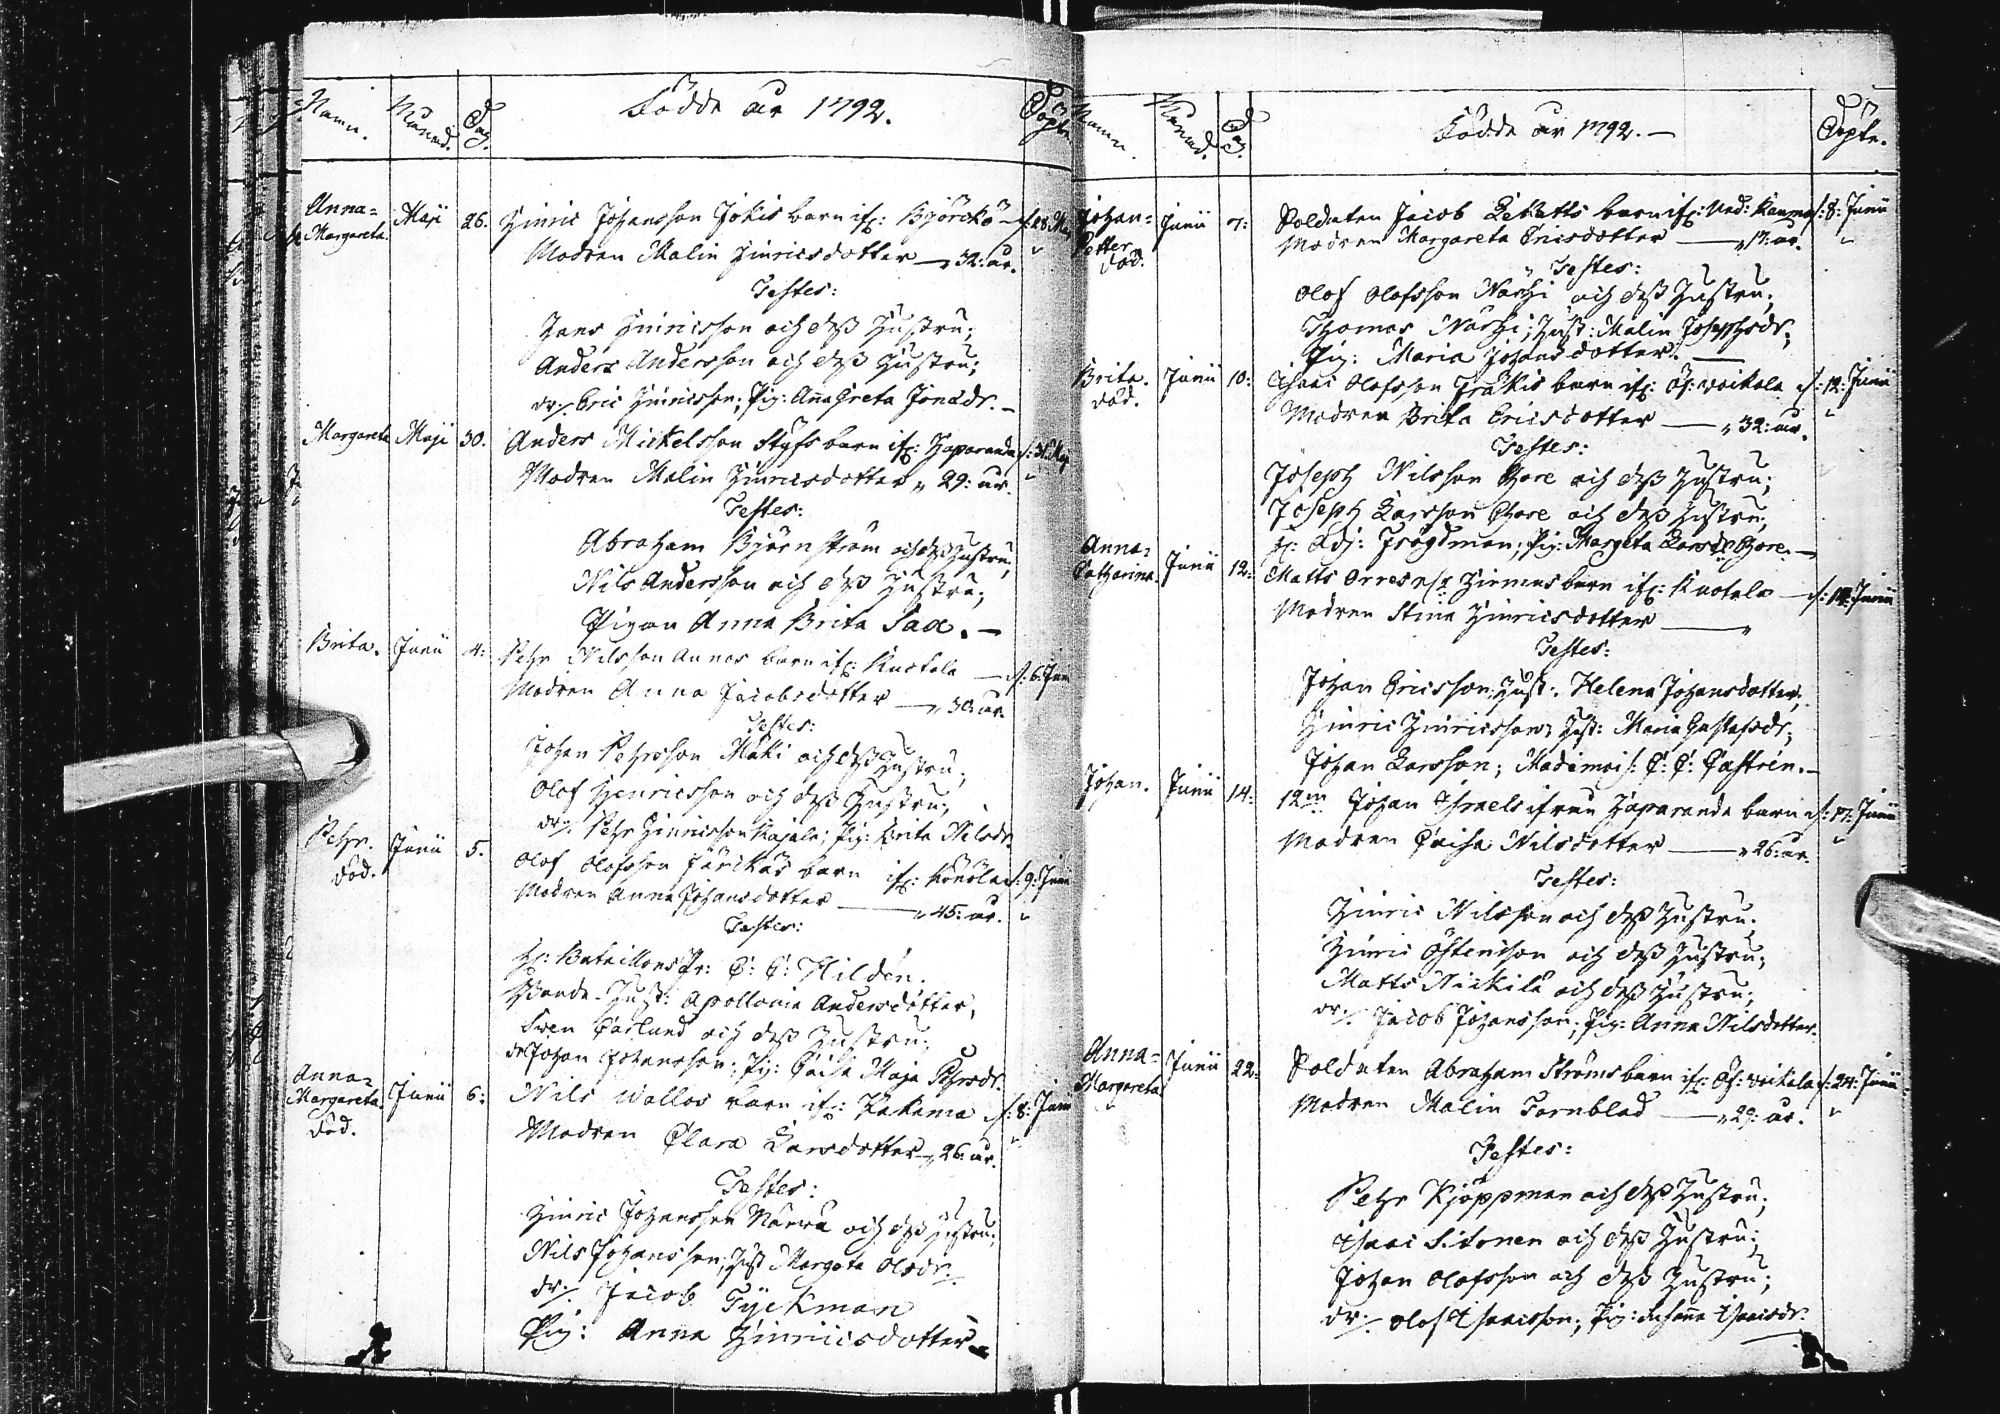 Namn. Månad. Dag. Födde år 1792. Döpte
Anna= Maji 26. Hinric Johansson Jokis barn ifr: Björckö d: 28 Maj
Margareta. Modren Malin Hinricsdotter — 32: år. "
Testes:
Hans Hinricsson och dess Hustru;
Anders Andersson och dess Hustru;
dr:/. Eric Hinricsson; Pig: Anna Greta Jonædr. —
Margareta Maji 30. Anders Mickelsson Styfs barn ifr: Haparanda d: 31: Maj
Modren Malin Hinricsdotter " 29: år. "
Testes:
Abraham Björnström och dess Hustru;
Nils Andersson och dess Hustru;
Pigan Anna Brita Sax. —
Brita. Junii 4: Pehr Nilsson Annas barn ifr: Kuotala — d: 6. Jun
Modren Anna Jacobsdotter — 30: år.
Testes:
Johan Pehrsson Maki och dess Hustru;
Olof Henricsson och dess Hustru;
dr:/. Pehr Hinricsson Rajala; Pig: Brita Nilsdr.
Pehr. Junii 5. Olof Olofsson Järckäs barn ifr: Könöla d: 9: Junii
död. Modren Anna Johansdotter — " 45: år. "
Testes:
Hr: Bataillons Pr: C: C: Hildén.
Bonde-Hust: Apollonia Andersdotter,
Swen Carlund och dess Hustru;
dr Johan Johansson; Pig: Caisa Maja Pehrsdr.
Anna= Junii 6: Nils Wallos barn ifr: Kackama d: 8: Junii
Margareta. Modren Clara Larsdotter — 26: år. "
död.
Testes:
Hinric Johansson Närra och dess Hustru;
Nils Johansson; Hust Margeta Olsdr.
dr:/. Jacob Tyckman
Pig: Anna Hinricsdotter —
Namn. Månad. Dag. Födde år 1792. — Döpte.
Johan= Junii 7: Soldaten Jacob Lekatts barn ifr: Ned: d: 8: Junii
Petter Modren Margareta Ericsdotter — år. "
död.
Testes:
Olof Olofsson Närhi och dess Hustru;
Thomas Närhi; Hust: Malin Josephsdr;
Pig: Maria Johansdotter. —
Brita. Junii 10: Isaac Olofsson Fräkis barn ifr: Öf: Woikala d: 12: Junii
död. Modren Brita Ericsdotter — " 32: år. "
Testes:
Joseph Nilsson Hore och dess Hustru;
Joseph Larsson Hore och dess Hustru;
Hr: Adj: Frögdman; Pig: Margeta Larsdr Hore. —
Anna= Junii 12: Matts Hirmus barn ifr: Kuotala — d: 14: Junii
Catharina. Modren Stina Hinricsdotter — "
Testes:
Johan Ericsson; Hust: Helena Johansdotter;
Hinric Hinricsson; Hust: Maria Gustafsdr;
Johan Larsson; Madamois: C: C: Castrén. —
Johan. Junii 14: Johan Israels ifrån Haparanda barn d: 17: Junii
Modren Caisa Nilsdotter — " 26: år. "
Testes:
Hinric Nilsson och dess Hustru.
Hinric Östensson och dess Hustru;
Matts Nickilä och dess Hustru;
dr:/. Jacob Johansson; Pig: Anna Nilsdotter.
Anna= Junii 22: Soldaten Abraham Ströms barn ifr: Öf: Woikala d: 24: Junii
Margareta. Modren Malin Tornblad — " 29: år. "
Testes:
Pehr Kjöppman och dess Hustru;
Isaac Sitonen och dess Hustru;
Johan Olofsson och dess Hustru;
dr:/. Olof Isaacsson; Pig: Susanna Isaacsdr.